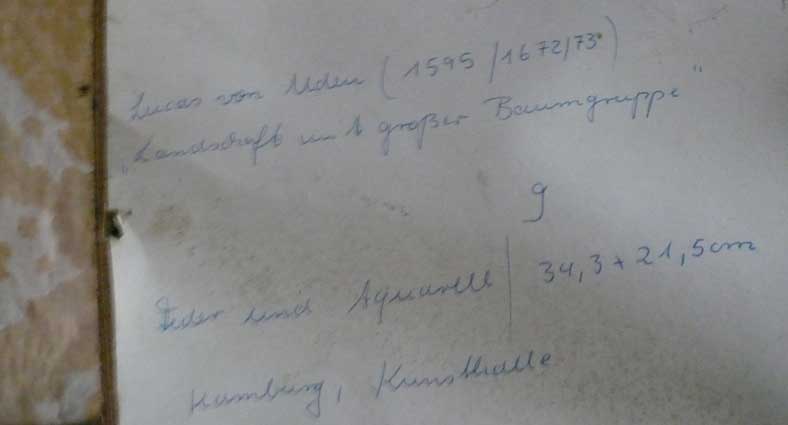 Lucas von Uden (1595/1672/73)
„Landschaft mit großer Baumgruppe"
9
Feder und Aquarell | 34,3 x 21,5cm
Hamburg, Kunsthalle